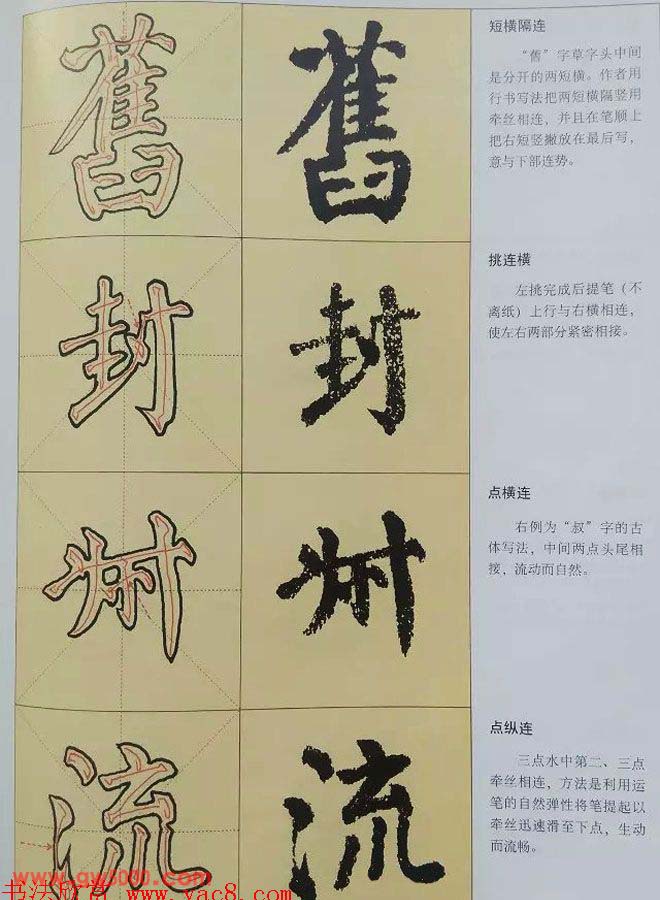 舊
短横隔连
“舊”字草字头中间
是分开的两短横。作者用
行书写法把两短横隔竖用
牵丝相连，并且在笔顺上
把右短竖撇放在最后写，
意与下部连势。
封
挑连横
左挑完成后提笔（不
离纸）上行与右横相连，
使左右两部分紧密相接。
点横连
右例为“叔”字的古
体写法，中间两点头尾相
接，流动而自然。
流
点纵连
三点水中第二、三点
牵丝相连，方法是利用运
笔的自然弹性将笔提起以
牵丝迅速滑至下点，生动
而流畅。
书法欣赏 www.yac8.com